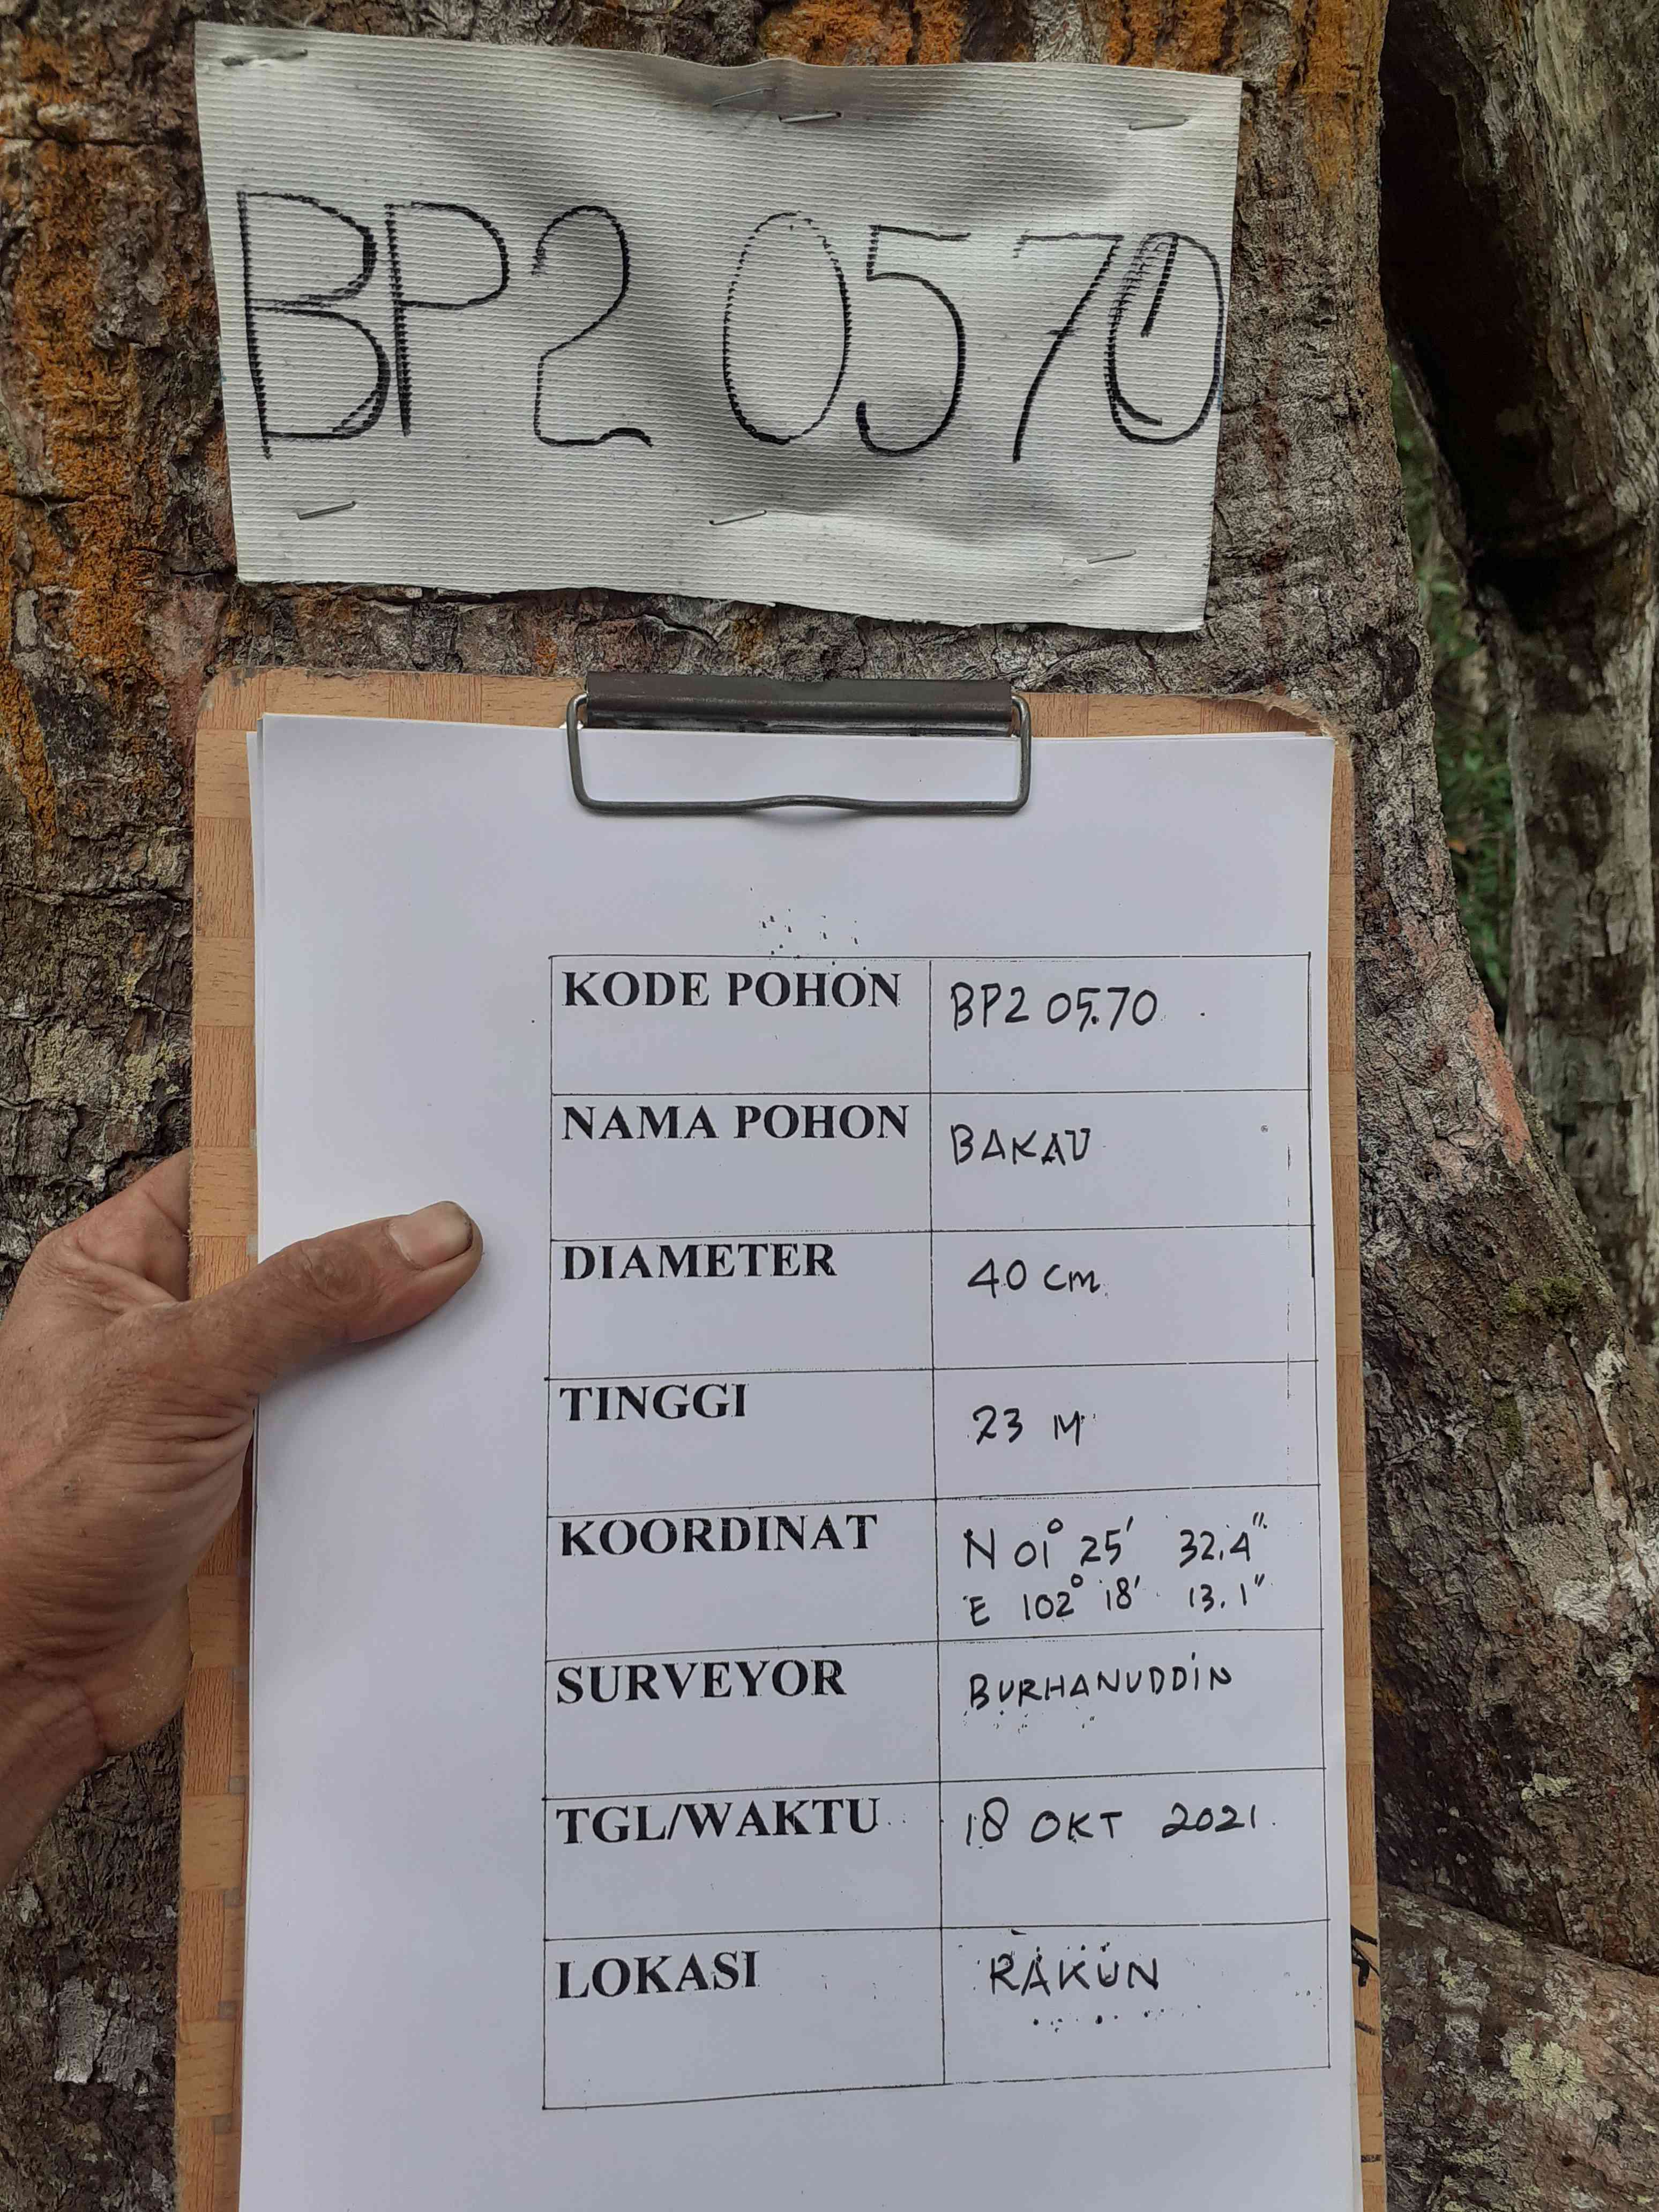 BP2 0570
KODE POHON BP2 0570
NAMA POHON BAKAU
DIAMETER 40 cm
TINGGI 23 M
KOORDINAT N 01° 25' 32.4"
E 102° 18' 13.1"
SURVEYOR BURHANUDDIN
TGL/WAKTU 18 OKT 2021
LOKASI RAKUN